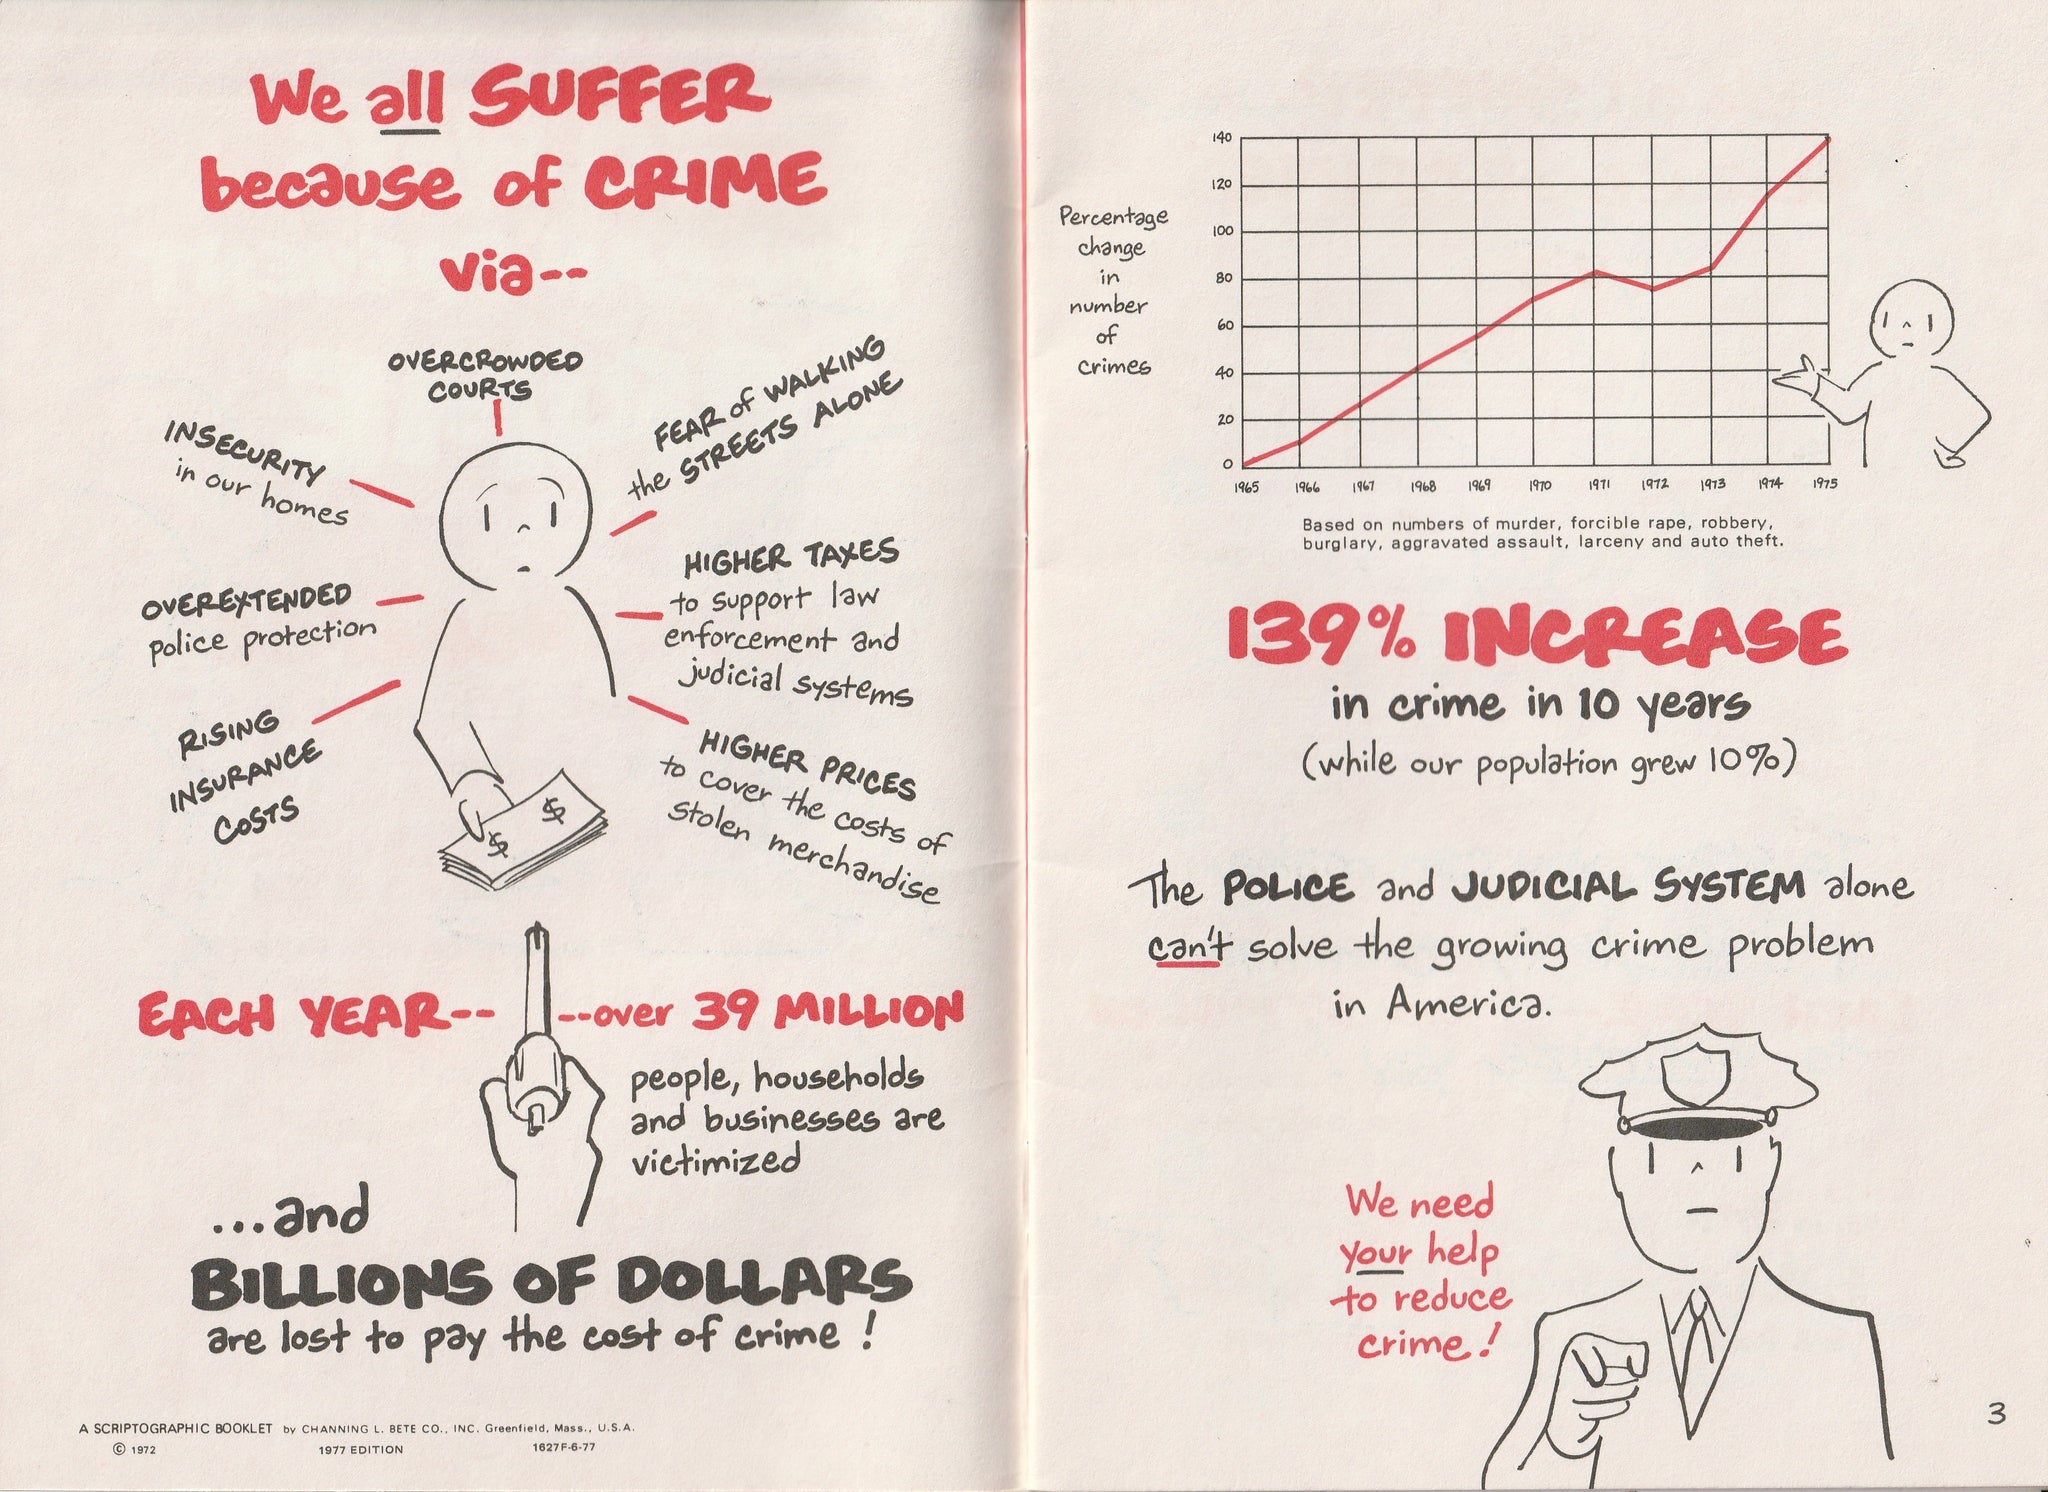 We all SUFFER
because of CRIME
via--
OVERCROWDED
COURTS
FEAR of WALKING
the STREETS ALONE
INSECURITY
in our homes
HIGHER TAXES
to support law
enforcement and
judicial systems
OVEREXTENDED
police protection
RISING
INSURANCE
COSTS
HIGHER PRICES
to cover the costs of
stolen merchandise
$ $
EACH YEAR-- --over 39 MILLION
people, households
and businesses are
victimized
...and
BILLIONS OF DOLLARS
are lost to pay the cost of crime!
A SCRIPTOGRAPHIC BOOKLET by CHANNING L. BETE CO., INC. Greenfield, Mass., U.S.A.
© 1972 1977 EDITION 1627F-6-77
Percentage
change
in
number
of
crimes
140
120
100
80
60
40
20
0
1965 1966 1967 1968 1969 1970 1971 1972 1973 1974 1975
Based on numbers of murder, forcible rape, robbery,
burglary, aggravated assault, larceny and auto theft.
139% INCREASE
in crime in 10 years
(while our population grew 10%)
The POLICE and JUDICIAL SYSTEM alone
can't solve the growing crime problem
in America.
We need
your help
to reduce
crime!
3